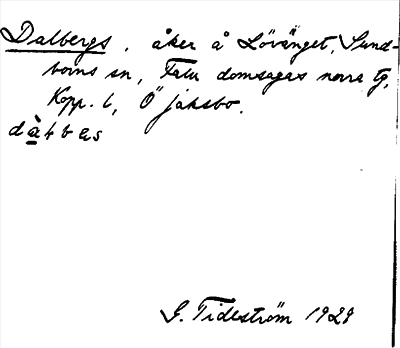 Dalbergs, åker å Lövänget, Sund-
borns sn, Falu domsagas norra tg,
Kopp. l, Ö jaksbo.
G. Tideström 1928